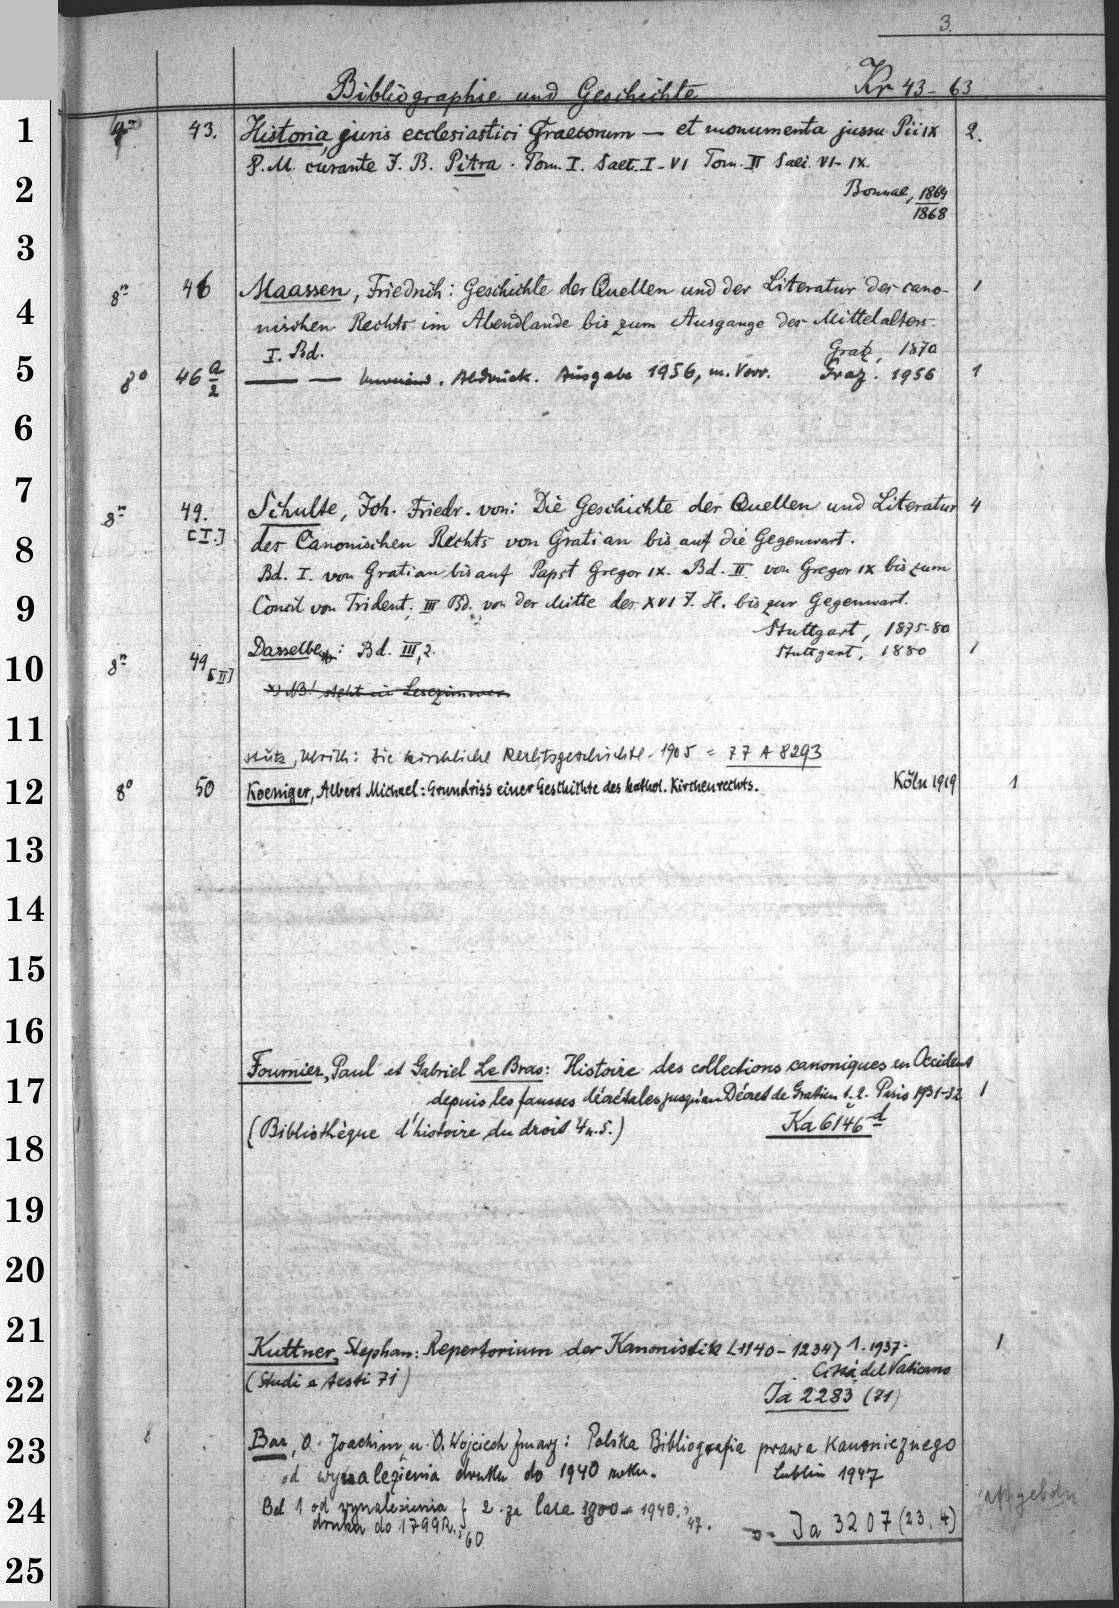 3.
Bibliographie und Geschichte Kr 43-63
1 4° 43. Historia juris ecclesiastici Graecorum — et monumenta jussu Pii IX 2.
P. M. curante J. B. Pitra. Tom. I. Saec. I-VI Tom. II Saec. VI-IX.
2 Romae, 1864
1868
3
8° 46 Maassen, Friedrich: Geschichte der Quellen und der Literatur des cano- 1
4 nischen Rechts im Abendlande bis zum Ausgange des Mittelalters
I. Bd. Gratz, 1870
5 8° 46 a/2 —— — Abdruck. Ausgabe 1956, m. Vorr. Graz. 1956 1
6
7 8° 49. [I.] Schulte, Joh. Friedr. von: Die Geschichte der Quellen und Literatur 4
8 des Canonischen Rechts von Gratian bis auf die Gegenwart.
Bd. I. von Gratian bis auf Papst Gregor IX. Bd. II von Gregor IX bis zum
9 Concil von Trident, III Bd. von der Mitte des XVI J. H. bis zur Gegenwart.
Stuttgart, 1875-80
10 8° 49 [II] Dasselbe *): Bd. III,2. Stuttgart, 1880 1
*) NB! steht im Lesezimmer
11
Stutz, Ulrich: Die kirchliche Rechtsgeschichte. 1905 = 77 A 8293
12 8° 50 Koeniger, Albert Michael: Grundriss einer Geschichte des kathol. Kirchenrechts. Köln 1919 1
13
14
15
16
Fournier, Paul et Gabriel Le Bras: Histoire des collections canoniques en Occident
17 depuis les fausses décrétales jusqu'au Décret de Gratien 1.2. Paris 1931-32 1
(Bibliothèque d'histoire du droit 4u.5.) Ka 6146 d
18
19
20
21 Kuttner, Stephan: Repertorium der Kanonistik (1140-1234) 1. 1937. 1
Città del Vaticano
22 (Studi e testi 71) Ja 2283 (71)
23 Bar, O. Joachim u. O. Wojciech Zmarz: Polska Bibliografia prawa Kanonicznego
od wynalezienia druku do 1940 roku. Lublin 1947
24 Bd 1 od wynalezienia 2. za lata 1800-1940.
druku do 1799 R. 60 47. Ja 3207 (23.4)
25